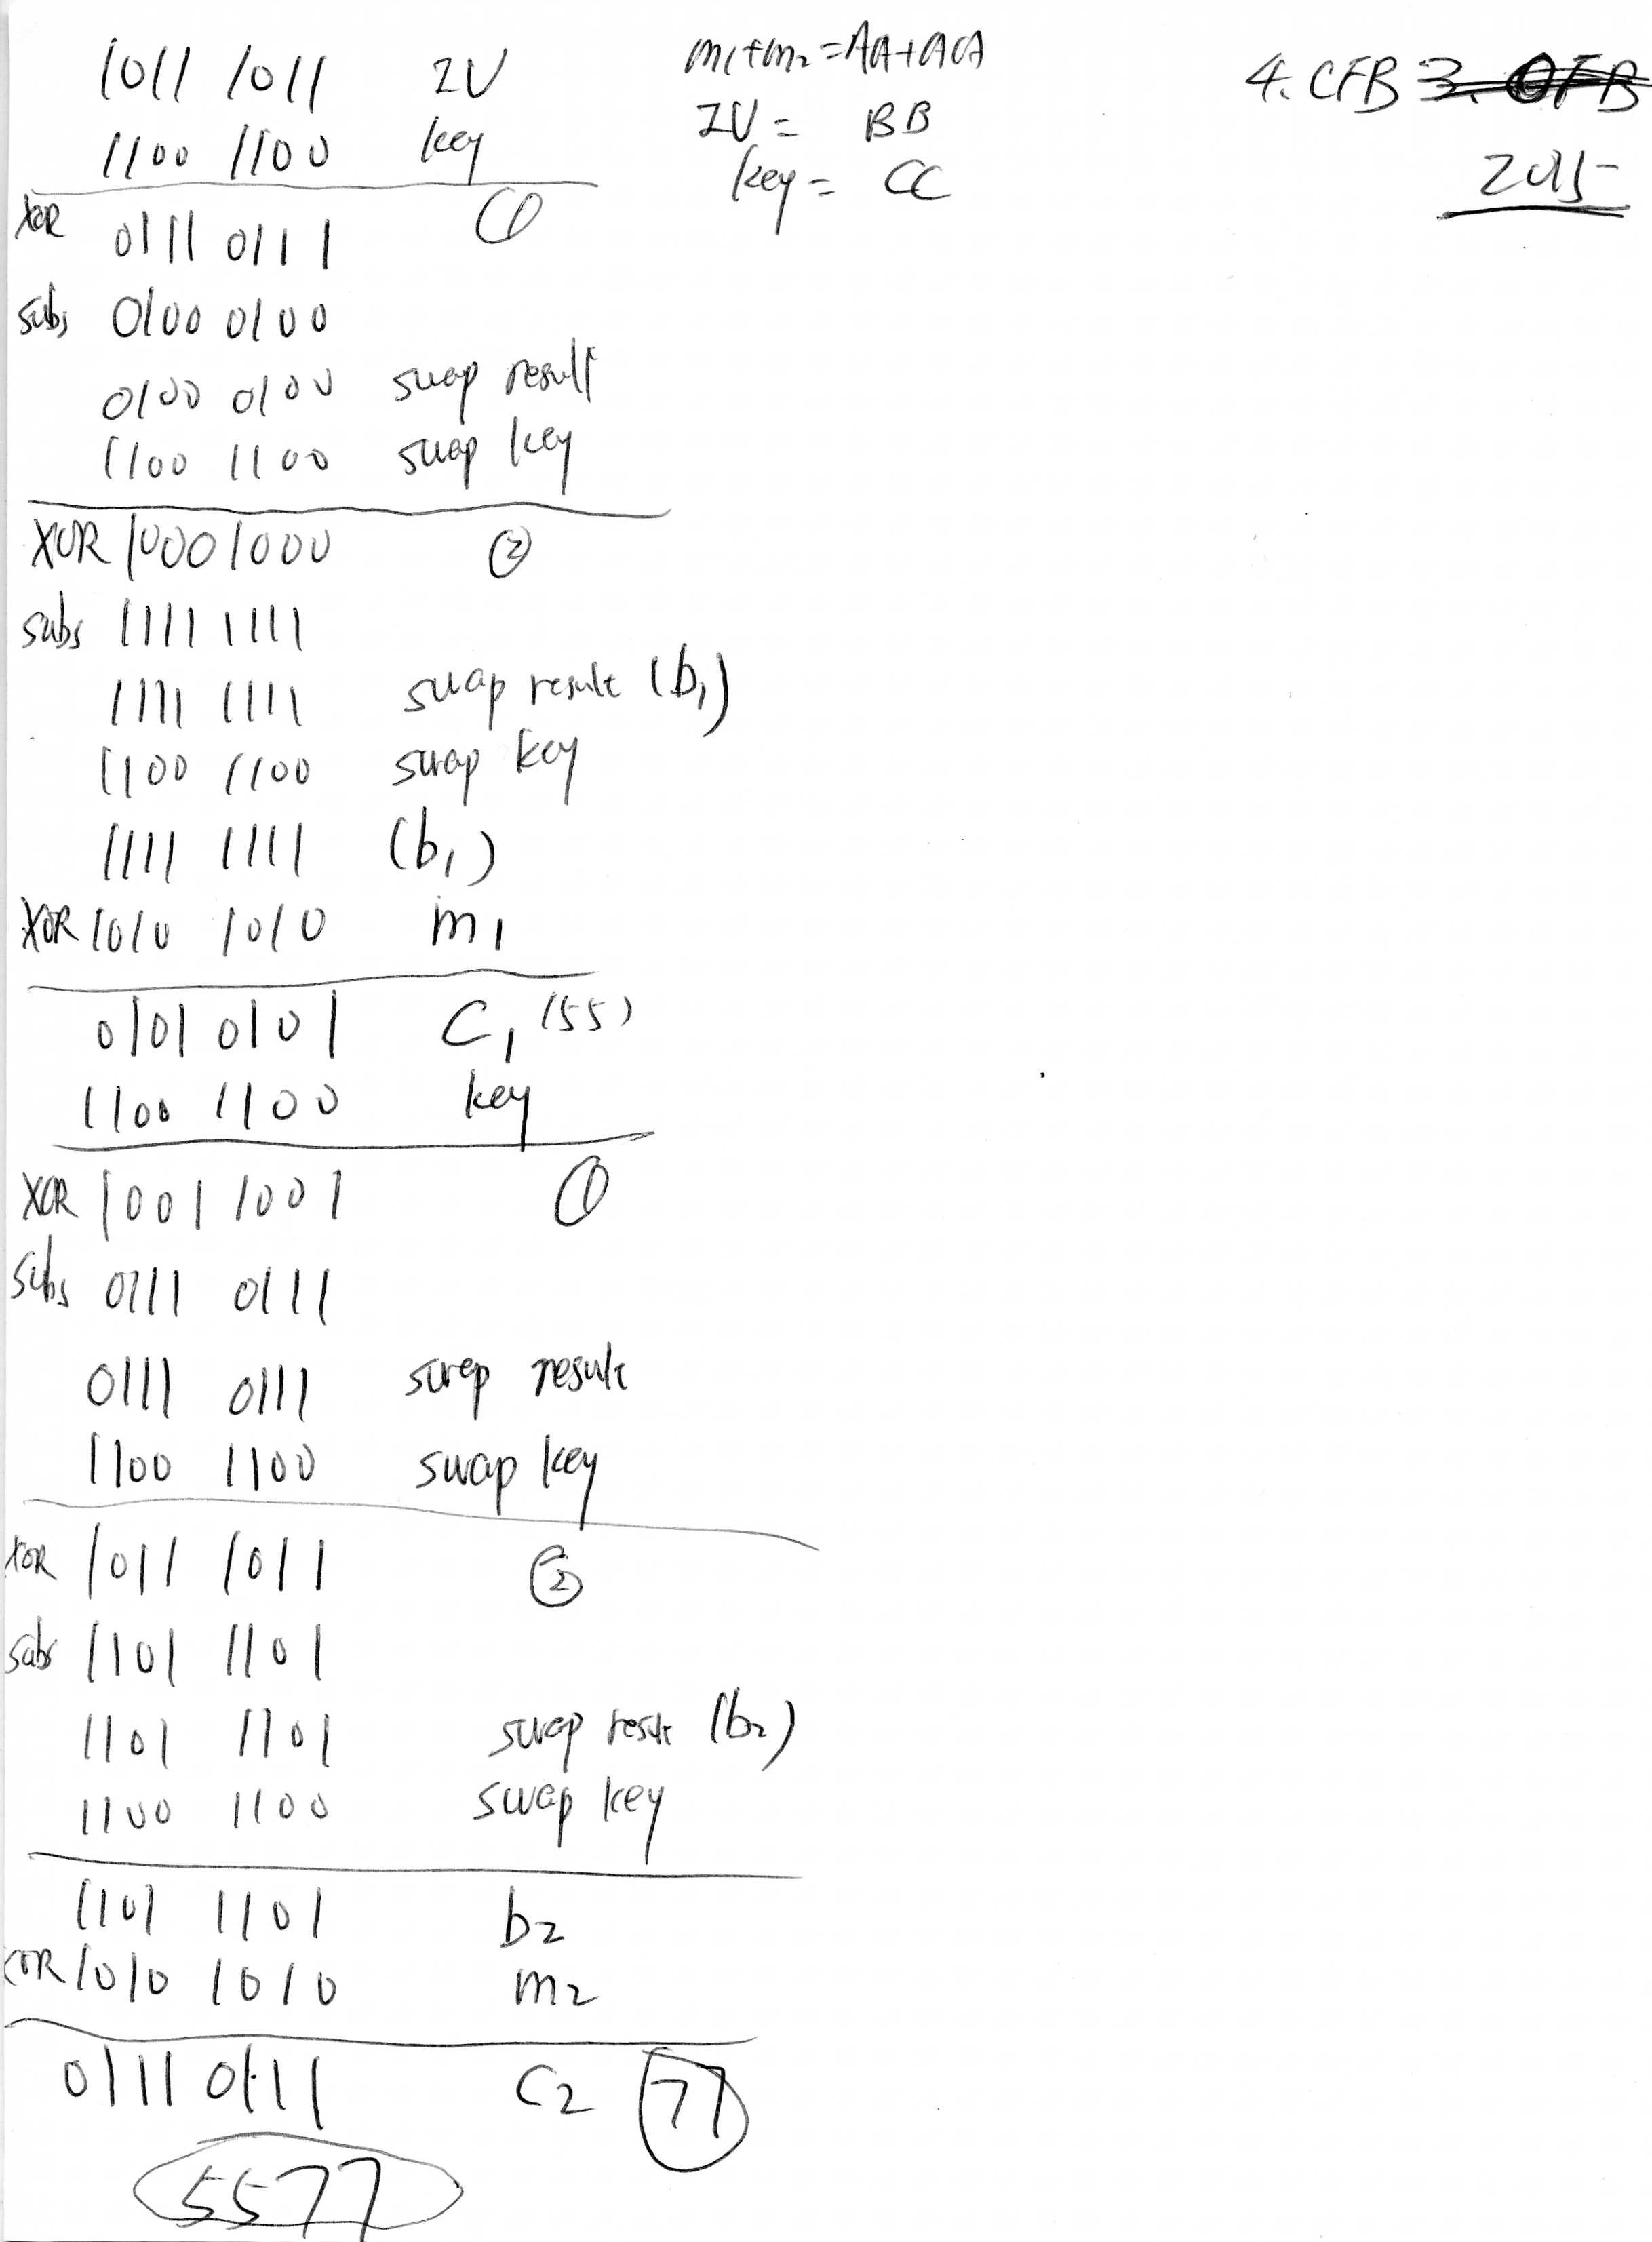 1011 1011 IV
1100 1100 key
m1+m2=AA+AA
IV= BB
key= CC
4. CFB 3. OFB
2015
XOR 0111 0111 ①
subs 0100 0100
0100 0100 swap result
1100 1100 swap key
XOR 1000 1000 ②
subs 1111 1111
1111 1111 swap result (b1)
1100 1100 swap key
1111 1111 (b1)
XOR 1010 1010 m1
0101 0101 C1 (55)
1100 1100 key
XOR 1001 1001 ①
subs 0111 0111
0111 0111 swap result
1100 1100 swap key
XOR 1011 1011 ②
subs 1101 1101
1101 1101 swap result (b2)
1100 1100 swap key
1101 1101 b2
XOR 1010 1010 m2
0111 0111 C2 77
5577